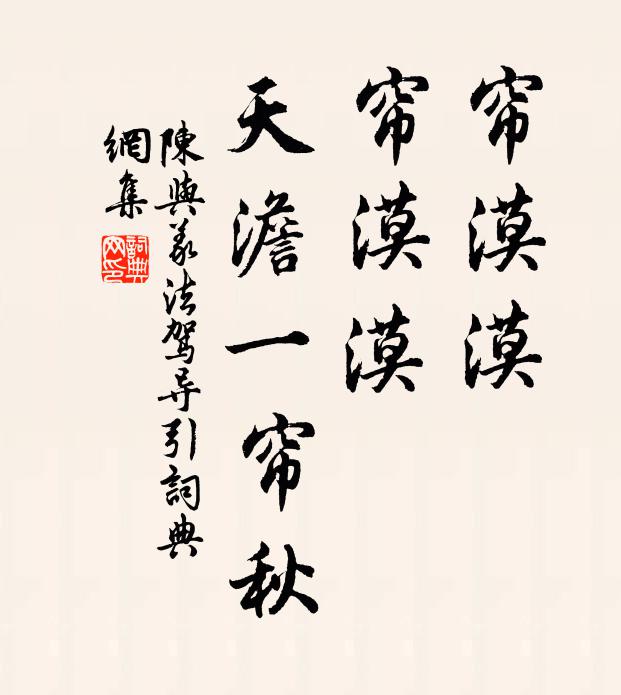 帘漠漠
帘漠漠
天澹一帘秋
陳與義法驾导引詞典
網集
詞典
网印